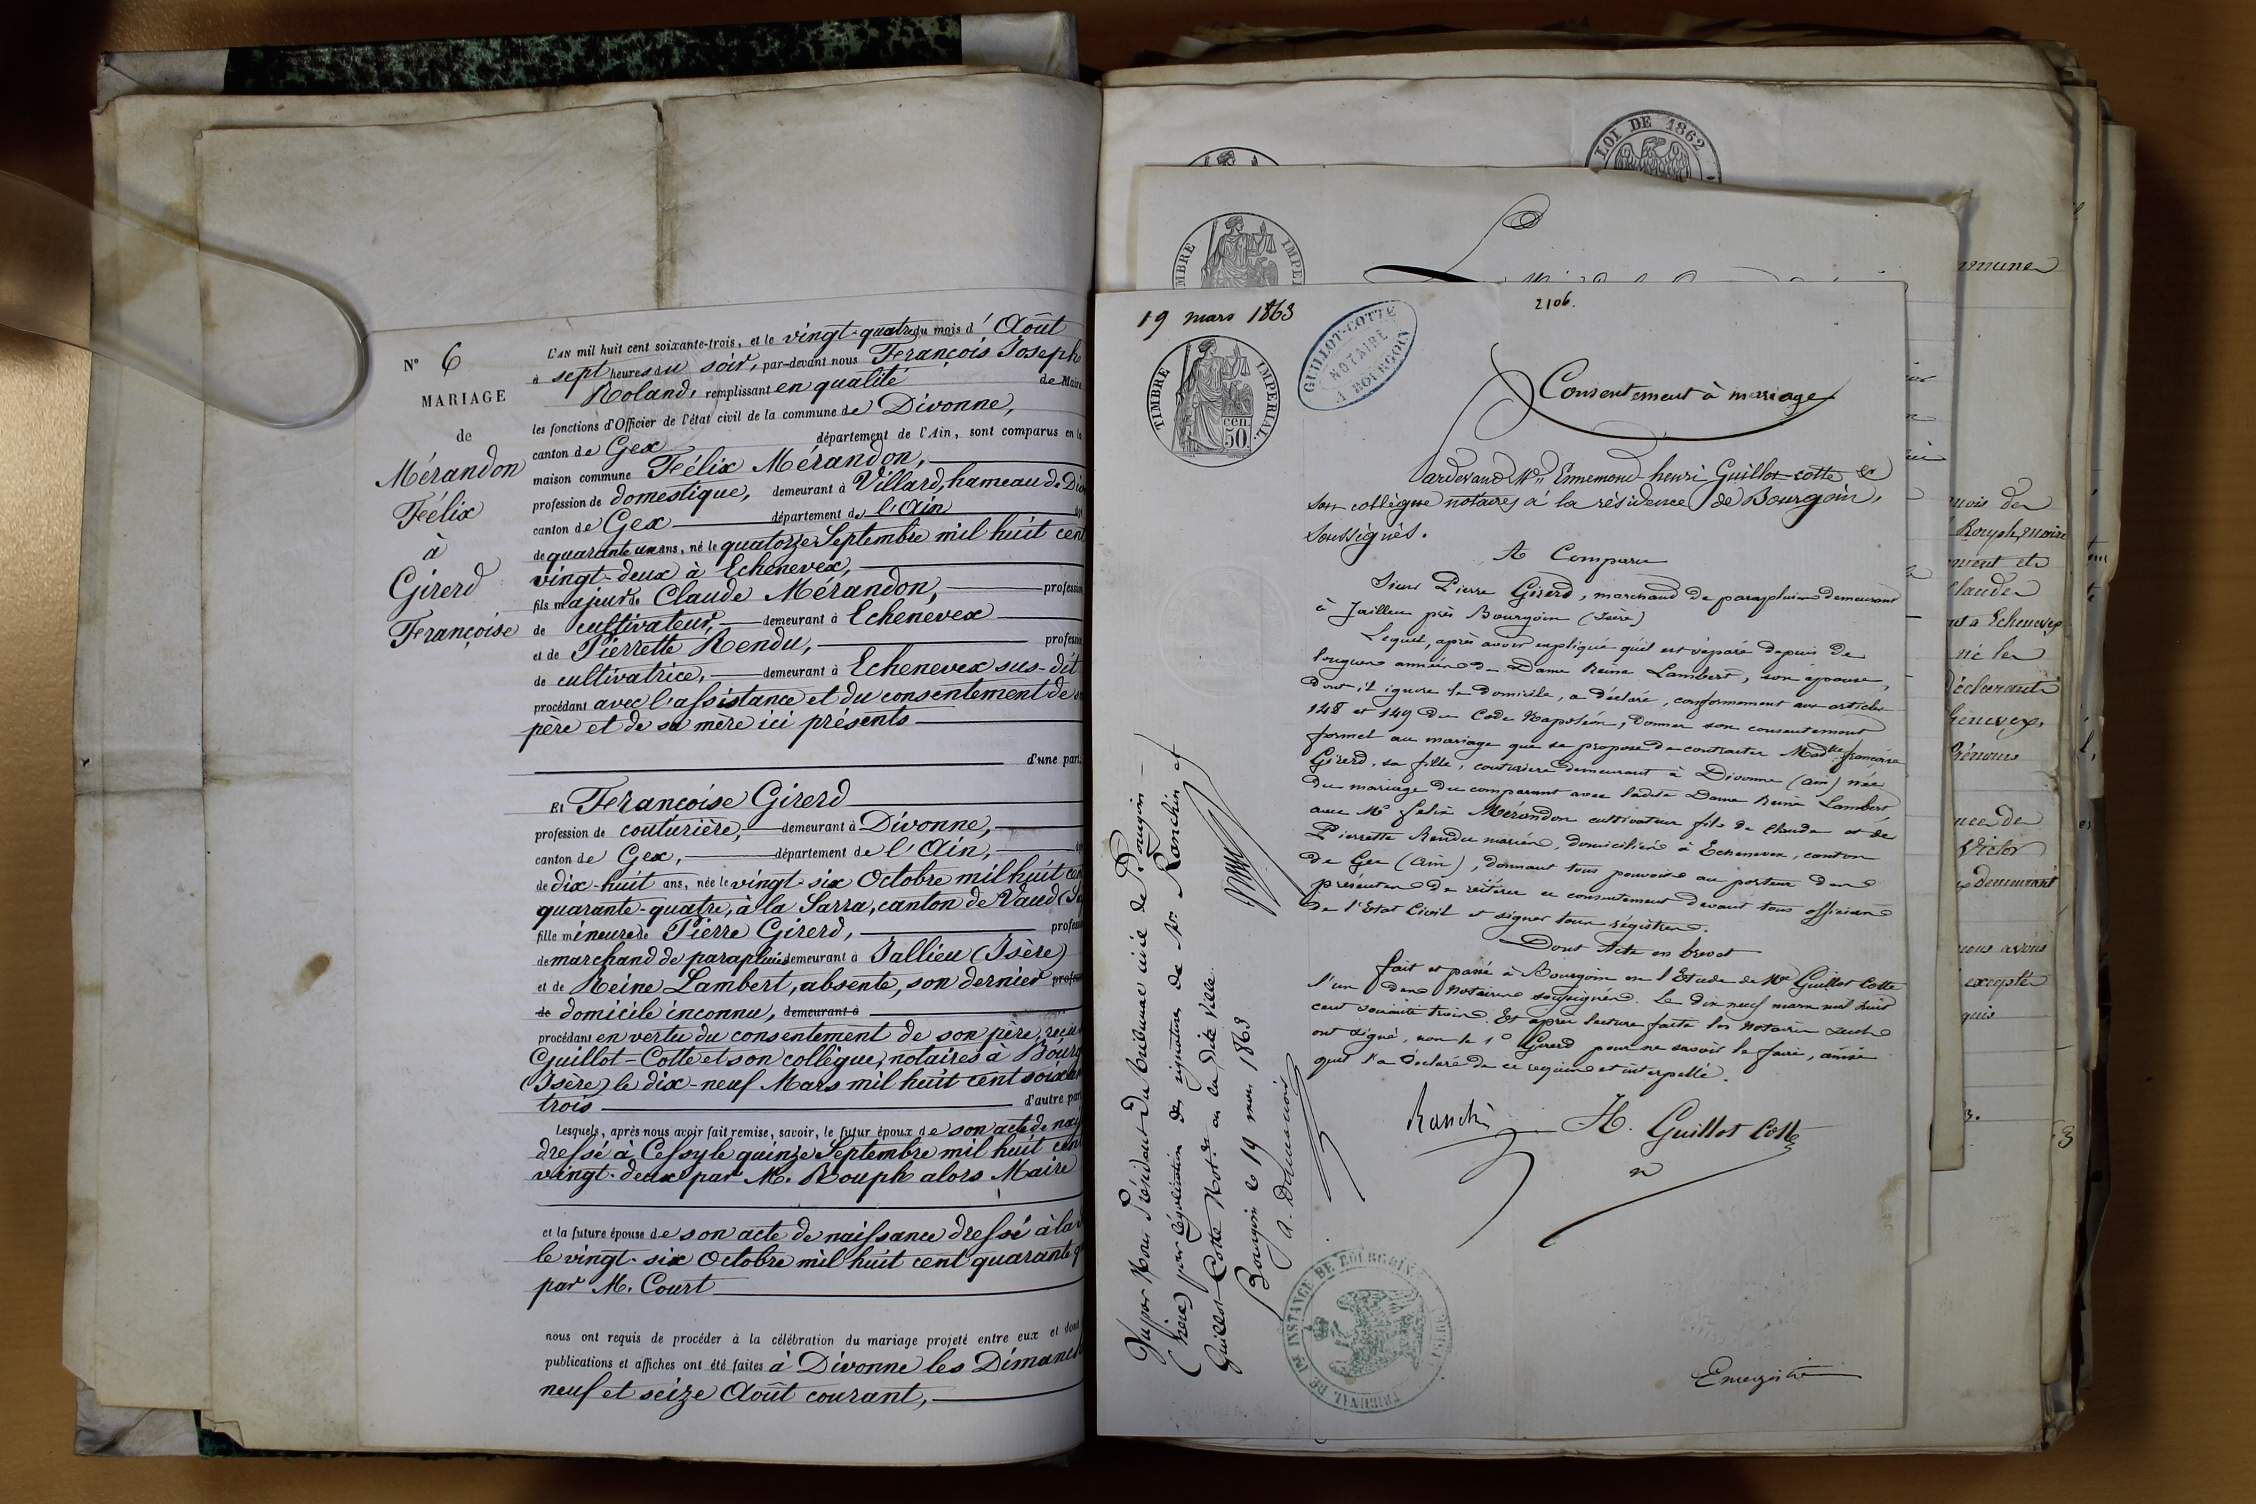 N° 6
MARIAGE
de
Mérandon
Félix
à
Girerd
Françoise
L'AN mil huit cent soixante-trois, et le vingt-quatre du mois d'Août
à sept heures du soir, par-devant nous François Joseph
Roland, remplissant en qualité de Maire
les fonctions d'Officier de l'état civil de la commune de Divonne,
canton de Gex département de l'Ain, sont comparus en la
maison commune Félix Mérandon,
profession de domestique, demeurant à Villard, hameau de Div
canton de Gex département de l'Ain
de quarante un ans, né le quatorze Septembre mil huit cent
vingt-deux à Echenevex,
fils majeur de Claude Mérandon, profession
de cultivateur, demeurant à Echenevex
et de Pierrette Rendu, profession
de cultivatrice, demeurant à Echenevex sus-dit
procédant avec l'assistance et du consentement de
père et de sa mère ici présents
d'une part,
Et Françoise Girerd
profession de couturière, demeurant à Divonne,
canton de Gex, département de l'Ain,
de dix-huit ans, née le vingt-six Octobre mil huit cent
quarante-quatre, à la Sarra, canton de Vaud (S
fille mineure de Pierre Girerd, profess
de marchand de parapluies demeurant à Jallieu (Isère)
et de Reine Lambert, absente, son dernier profess
de domicile inconnu, demeurant à
procédant en vertu du consentement de son père, reçu
Guillot-Cotte et son collègue, notaires à Bourg
(Isère) le dix-neuf Mars mil huit cent soixan
trois d'autre part
Lesquels, après nous avoir fait remise, savoir, le futur époux de son acte de nais
dressé à Cessy le quinze Septembre mil huit cent
vingt-deux par M. Rouph alors Maire
et la future épouse de son acte de naissance dressé à la
le vingt-six Octobre mil huit cent quarante q
par M. Court
nous ont requis de procéder à la célébration du mariage projeté entre eux et dont
publications et affiches ont été faites à Divonne les Dimanch
neuf et seize Août courant,
LOI DE 1862
TIMBRE IMPERIAL
19 mars 1863
2106.
GUILLOT-COTTE
NOTAIRE
A BOURGOIN
TIMBRE IMPERIAL.
50 cen
Consentement à mariage
Pardevant Me Ennemond henri Guillot-cotte &
son collègue notaires à la résidence de Bourgoin,
soussignés.
A Comparu
Sieur Pierre Girerd, marchand de parapluies demeurant
à Jailleu près Bourgoin (Isère)
Lequel, après avoir expliqué qu'il est séparé depuis de
longues années de Dame Reine Lambert, son épouse,
dont il ignore le domicile, a déclaré, conformément aux articles
148 et 149 du Code Napoléon, donner son consentement
formel au mariage que se propose de contracter Madlle françoise
Girerd, sa fille, couturière demeurant à Divonne (ain) née
du mariage du comparant avec ladite Dame Reine Lambert
avec Mr felix Mérandon cultivateur fils de Claude et de
Pierrette Rendu mariés, domiciliés à Echenevex, canton
de Gex (ain), donnant tous pouvoirs au porteur des
présentes de réitérer ce consentement devant tous officiers
de l'Etat Civil et signer tous régistres.
Dont Acte en brevet
fait et passé à Bourgoin en l'Etude de Me Guillot Cotte
l'un des Notaires soussignés. Le dix neuf mars mil huit
cent soixante trois. Et après lecture faite les Notaires seuls
ont signé, non le sr Girerd pour ne savoir le faire, ainsi
qu'il l'a déclaré de ce requis et interpellé.
Ranchi H. Guillot Cotte
n
Enregistré
Vu par Nous Président du tribunal civil de Bourgoin
(Isère) pour légalisation des signatures de Mes Ranchin et
Guillot-Cotte Not. en la dite ville.
Bourgoin le 19 mars 1863
TRIBUNAL DE 1re INSTANCE DE BOURGOIN
mmune
mois de
Rouph, maire
Claude
nt à Echenevex
né le
déclarant
nce de
Victor
demeurant
nous avons
excepté
quis